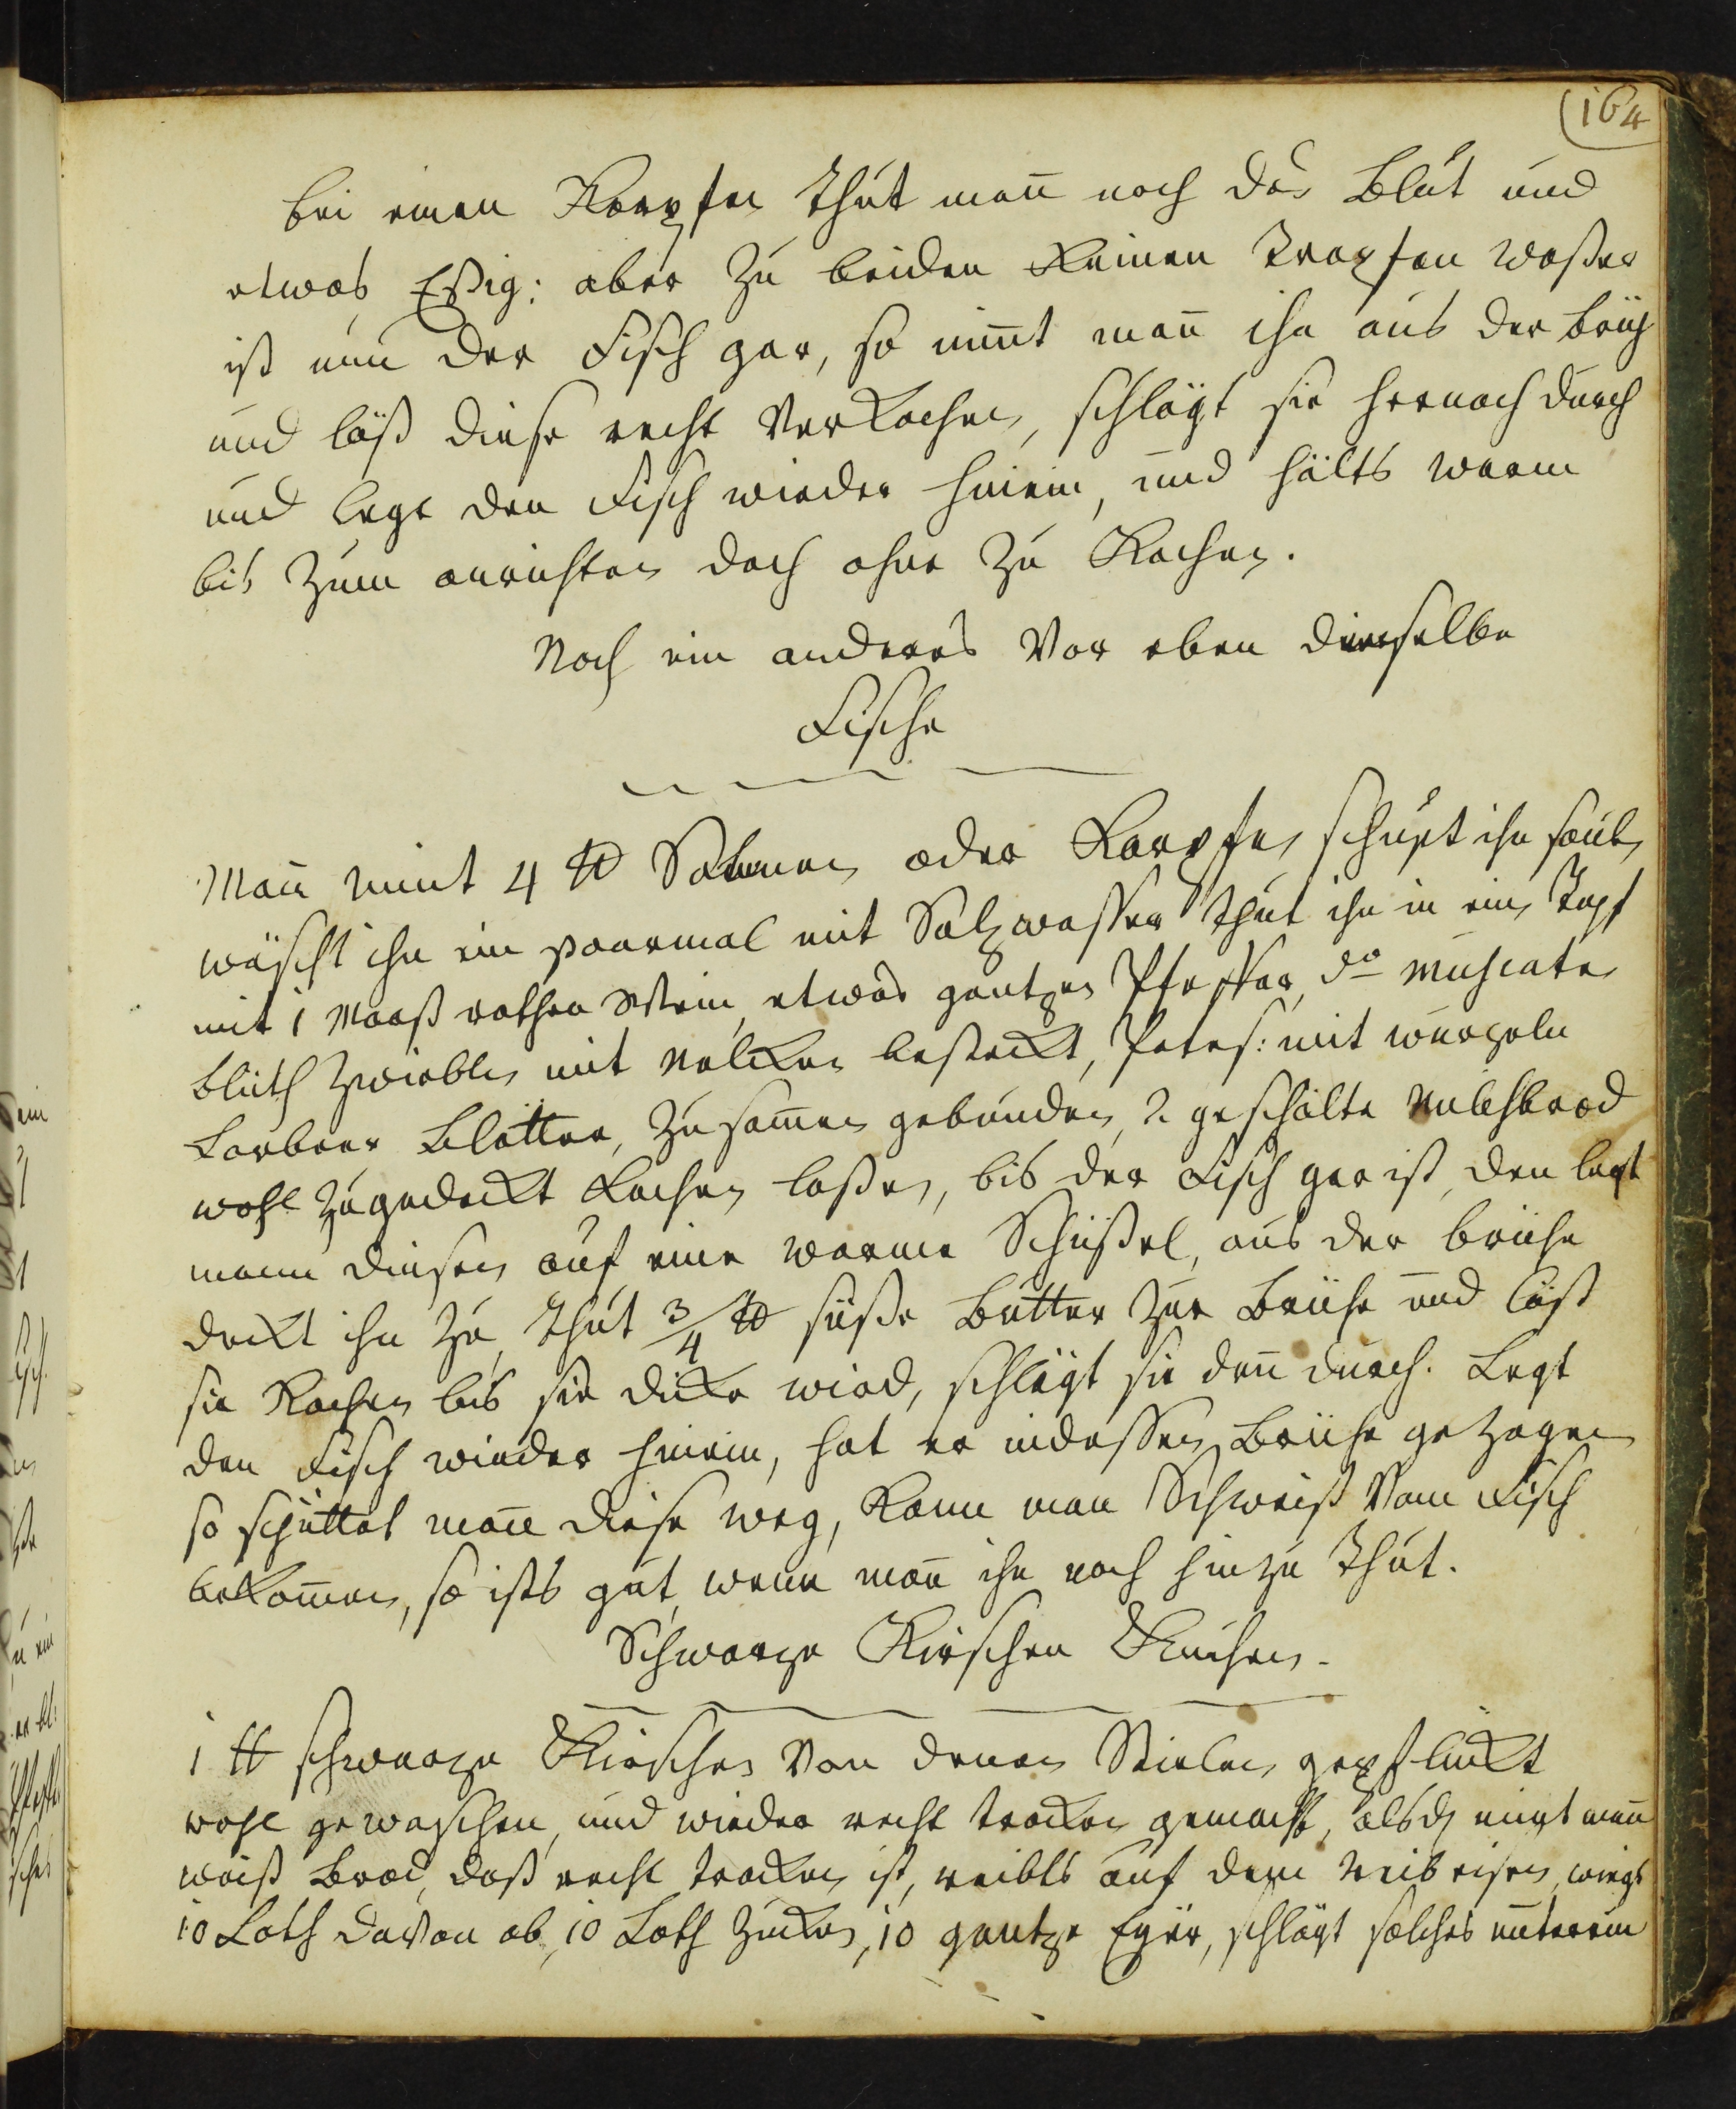 164
bei einen Karpfen thut man̄ noch das Blut und
etwas Eßig: aber zu beiden keinen Tropfen waßer
ist nun der Fisch gar, so nim̄t man̄ ihn aus der brüh
und läß diese recht verkochen, schlägt sie hernach durch
und legt den Fisch wieder hinein, und hälts warm
bis zum anrichten doch ohne zu Kochen.
Noch ein anderes Vor eben dieselbe
Fische
Man̄ nimt 4 ℔ Salmen oder Karpfen schupt ihn saub
wäscht ihn ein paarmal mit Salzwasser thut ihn in ein Topf
mit 1 Maaß rothen Wein, etwas gantzen Pfeffer, do Muscate
blüth Zwieblen mit Nelken besteckt, Peters: mit wurzeln
Lorbeer Blätter, zusam̄en gebunden, 2 geschälte Milchbrod
wohl zugedeckt Kochen laßen, bis der Fisch gar ist, den legt
mann diesen auf eine warme Schüßel, aus der brühe
deckt ihn zu, thut 3/4 ℔ süße Butter zur Brühe und läst
sie Kochen bis sie dicke wird, schlägt sie den̄ durch. Legt
den Fisch wieder hinein, hat er indessen Brühe gezogen
so schüttet man̄ diese weg, Kann man Schweiß vom Fisch
bekom̄en, so ists gut, wenn man̄ ihn noch hinzu thut.
Schwarze Kirschen Kuchen.
1 ℔ schwarze Kirschen von denen Stielen gepflückt
wohl gewaschen, und wieder recht trocken gemacht, alsd nimt man̄
weiß Brod, daß recht trocken ist, reibts auf dem Reibeisen, wiegt
10 Loth davon ab, 10 Loth Zucker, 10 gantze Eyer, schlägt solches unterein